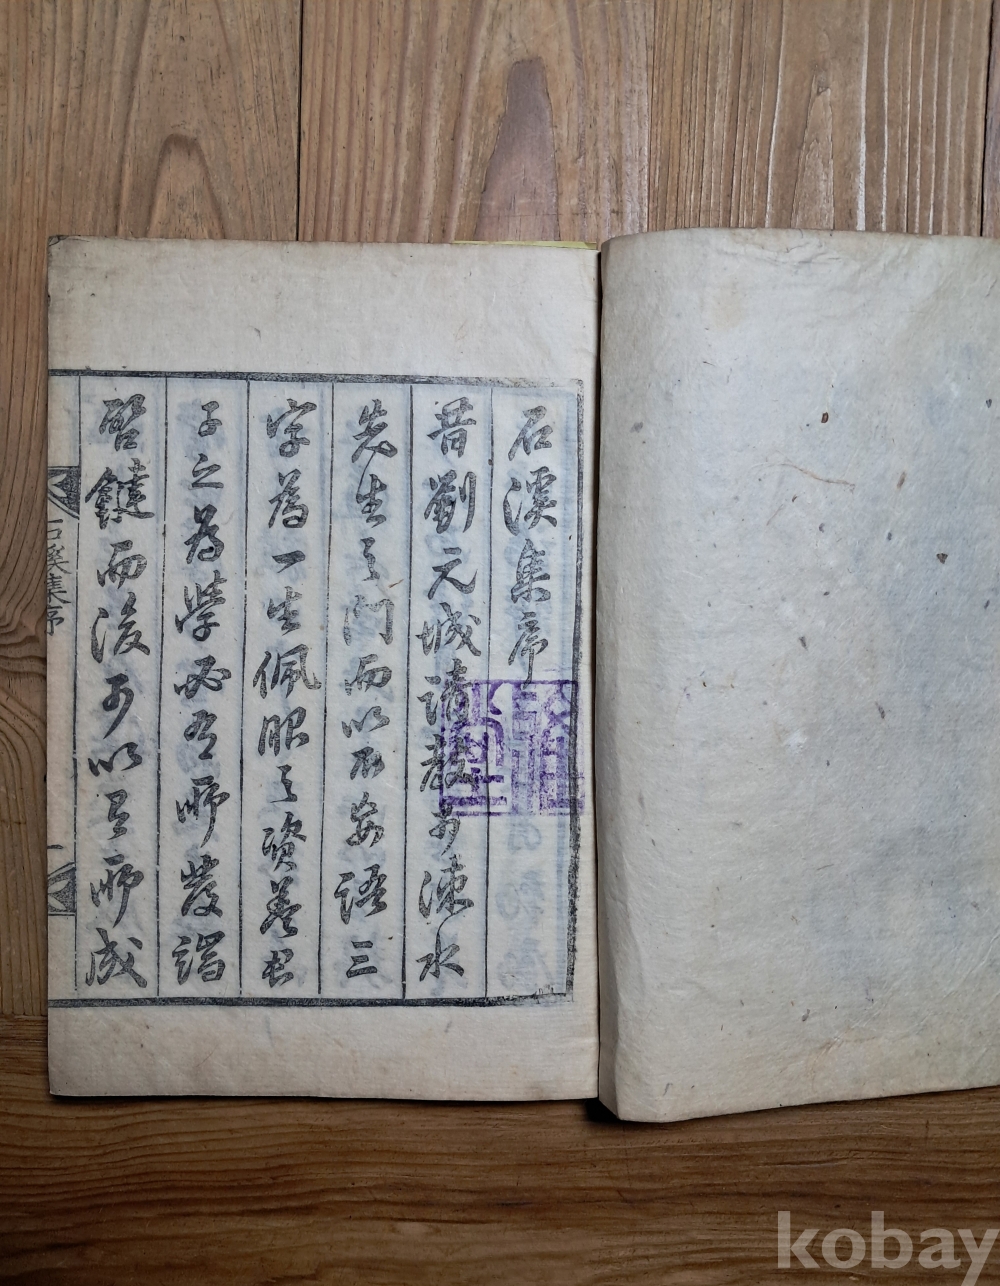 石溪集序
昔劉元城請教於涑水
先生之門而以不妄語三
字為一生佩服之資蓋君
子之為學必有所發端
啓鍵而後可以有所成
石溪集序
一
kobay